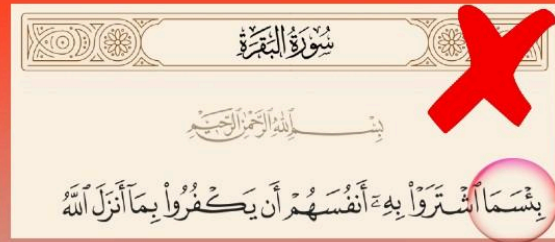 سُورَةُ الْبَقَرَةِ
بِسْمِ اللَّهِ الرَّحْمَٰنِ الرَّحِيمِ
بِئْسَمَا ٱشْتَرَوْا۟ بِهِۦٓ أَنفُسَهُمْ أَن يَكْفُرُوا۟ بِمَآ أَنزَلَ ٱللَّهُ